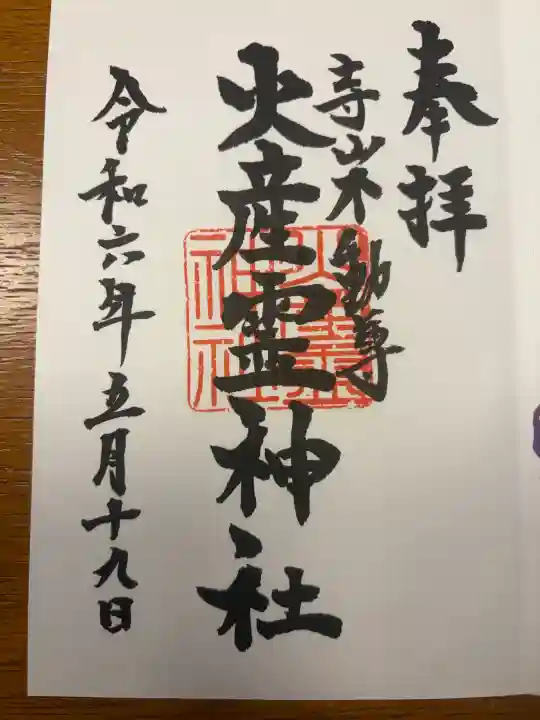 奉拝
寺山不動尊
火産霊神社
令和六年五月十九日